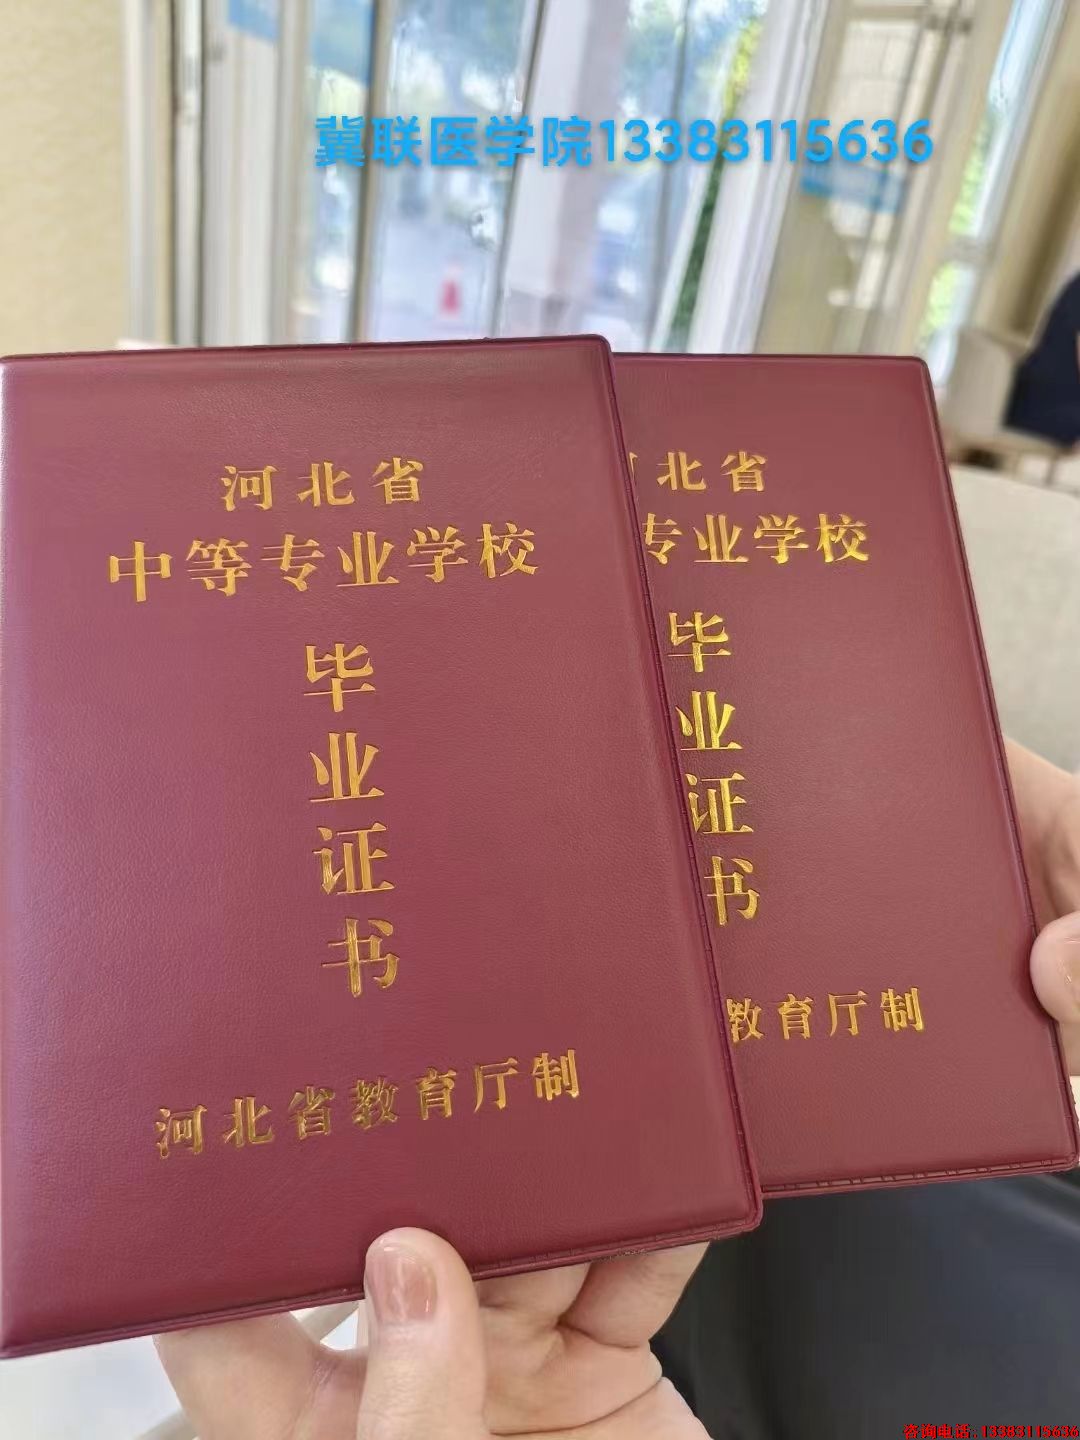 冀联医学院13383115636
河北省
中等专业学校
毕
业
证
书
河北省教育厅制
北省
专业学校
毕
业
证
书
教育厅制
咨询电话..13383115636